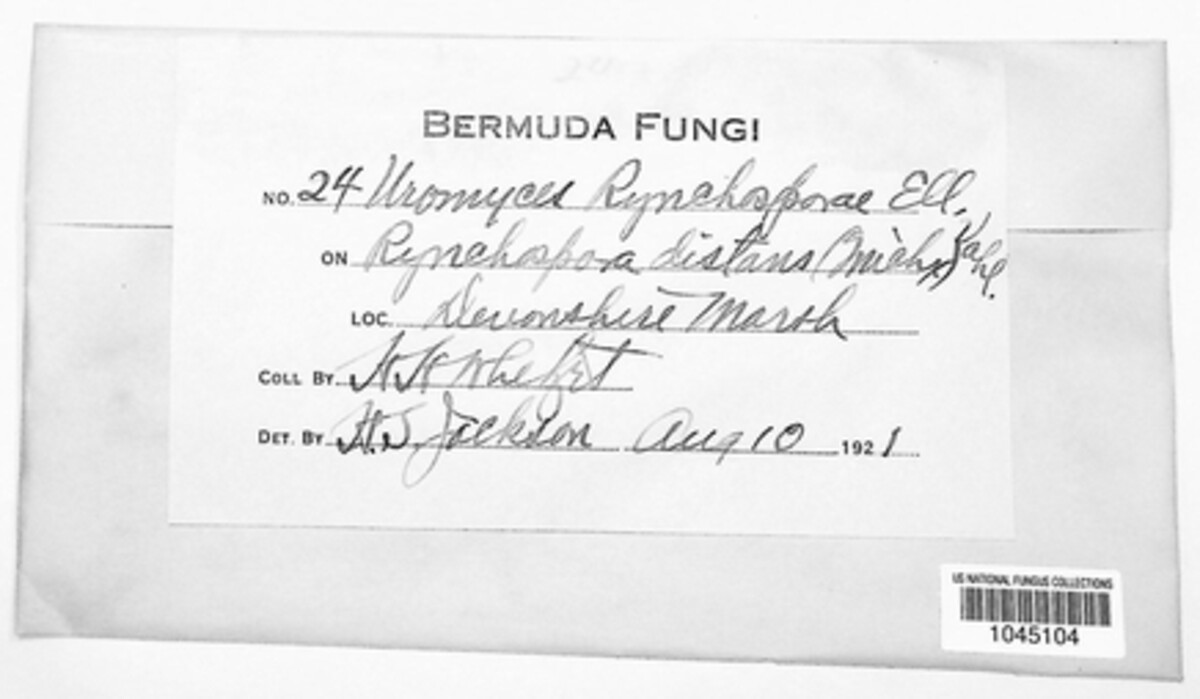 BERMUDA FUNGI
NO. 24 Uromyces Rynchosporae Ell.
ON Rynchospora distans (Michx) Vahl.
LOC. Devonshire Marsh
COLL BY H H Whetzel
DET. BY H.S. Jackson Aug 10 1921
US NATIONAL FUNGUS COLLECTIONS
1045104